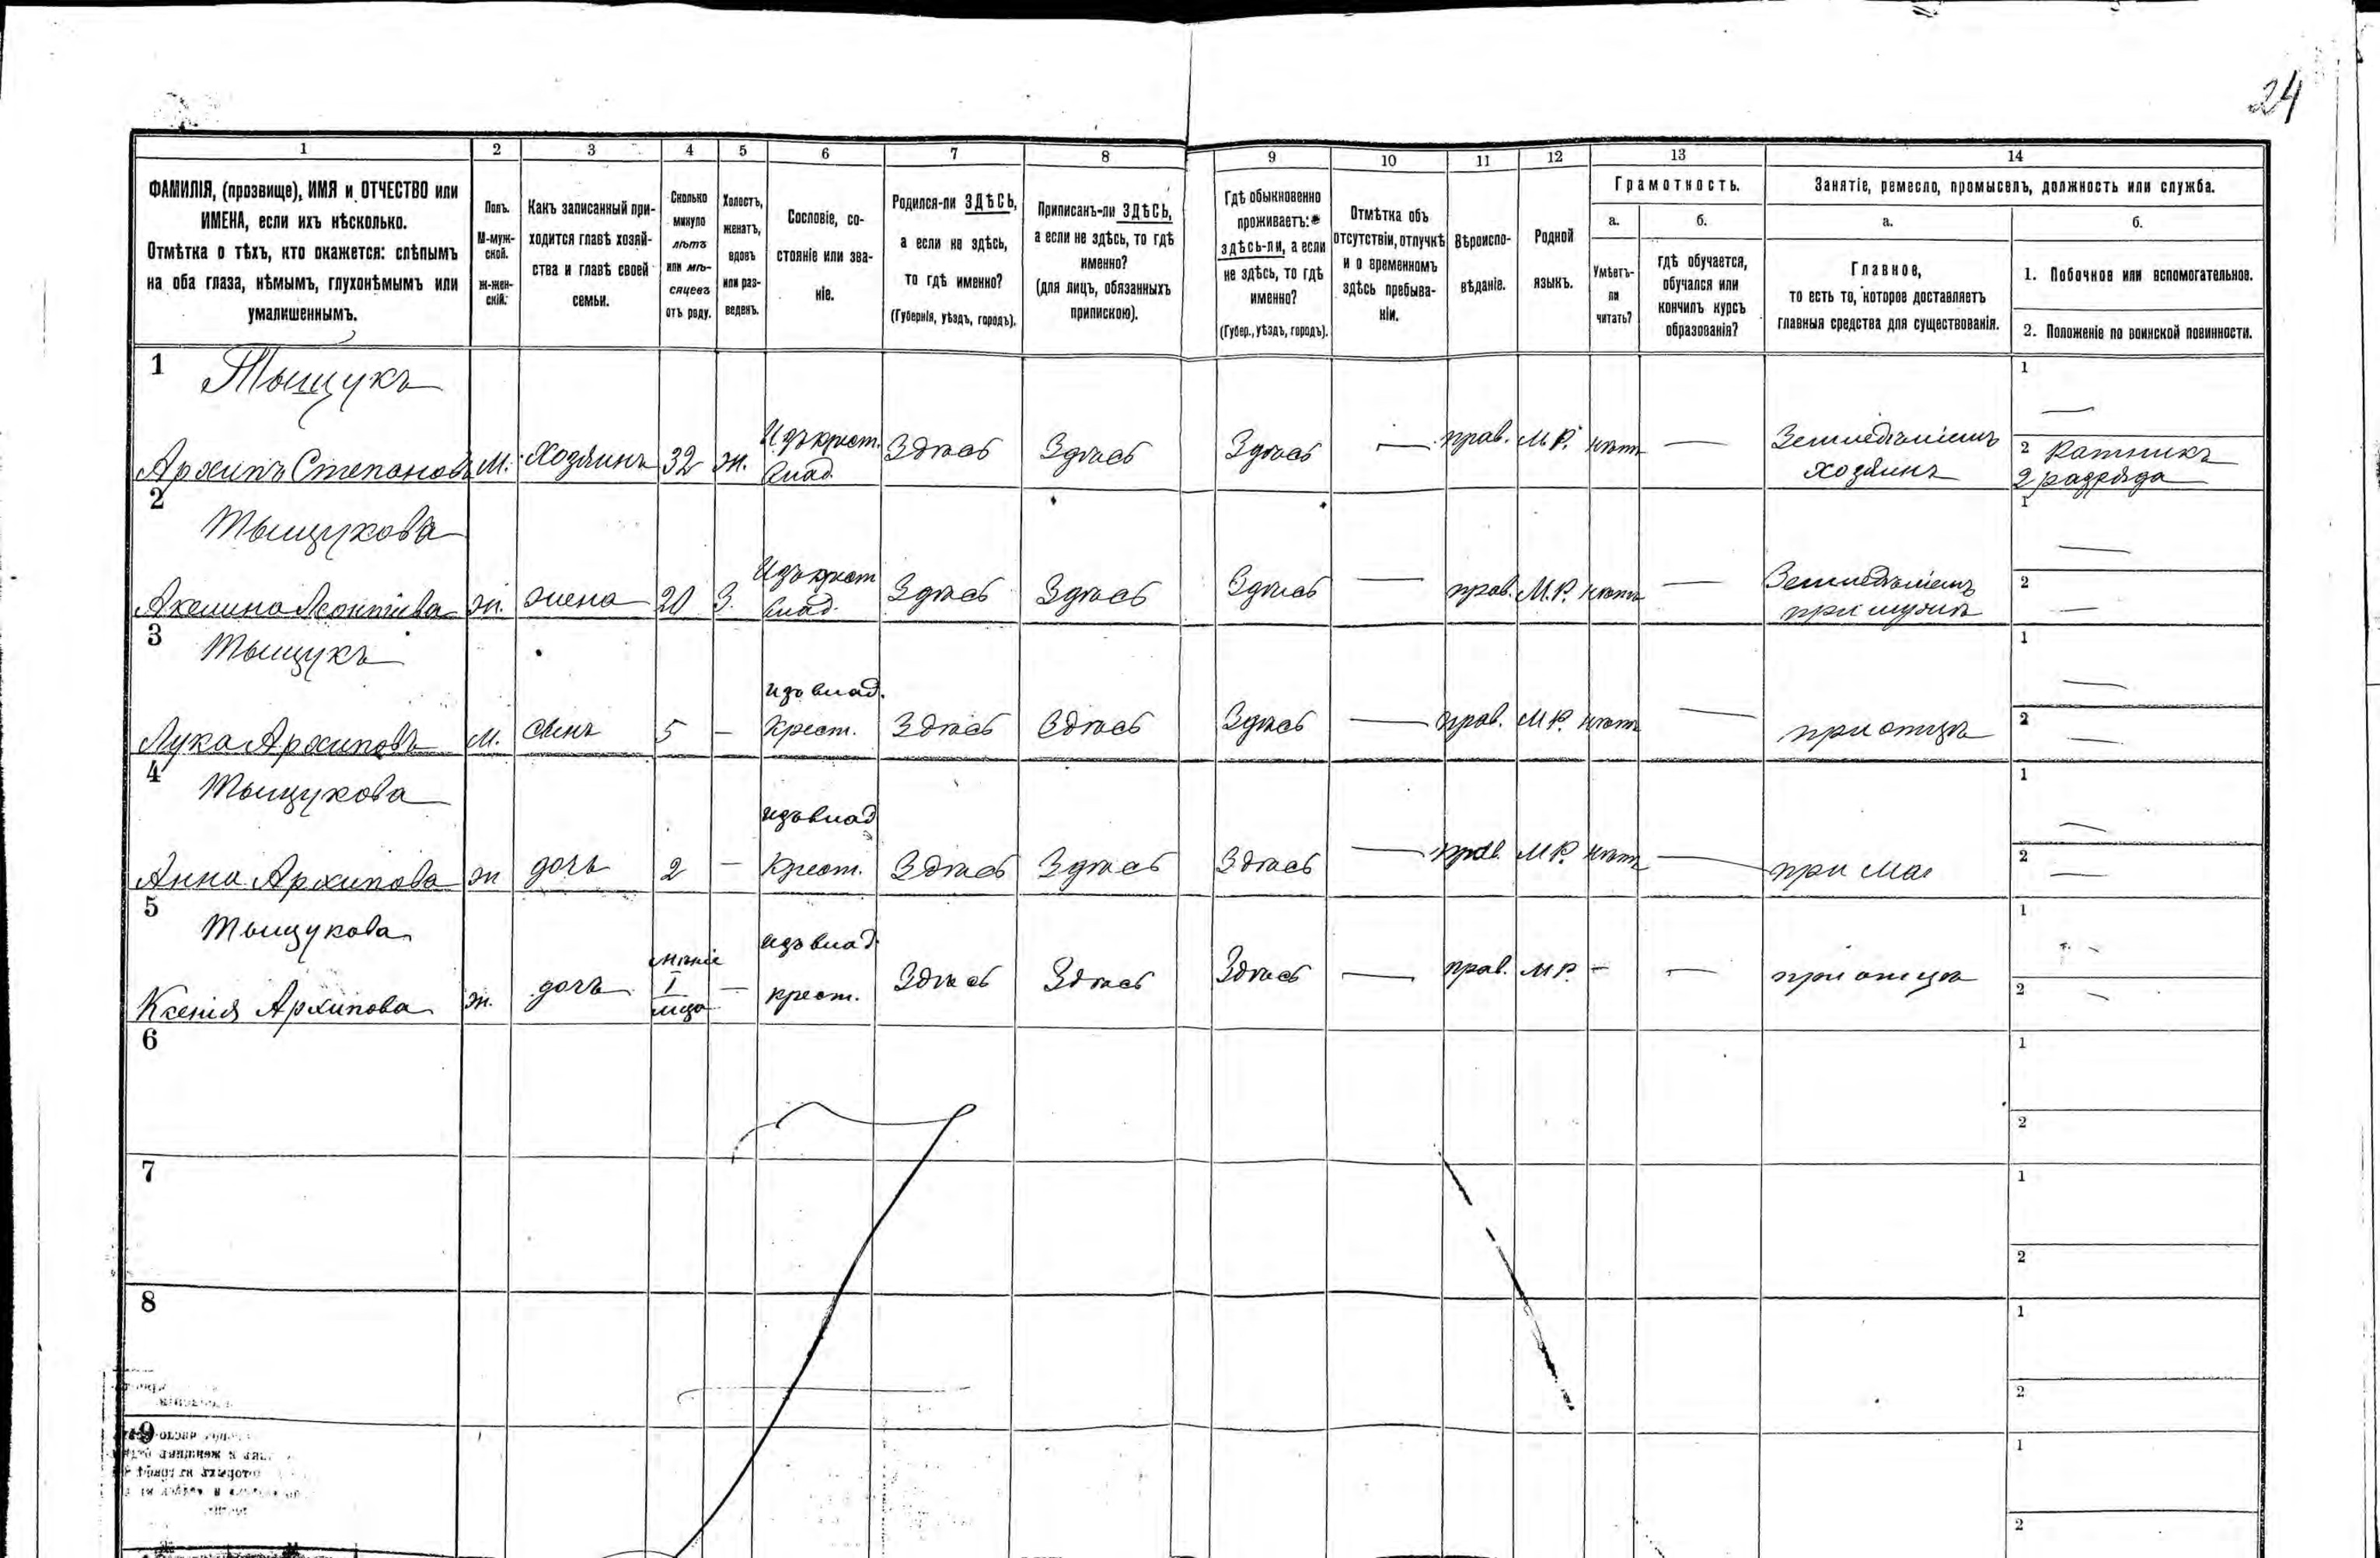 24
1 2 3 4 5 6 7 8 9 10 11 12 13 14
ФАМИЛІЯ, (прозвище), ИМЯ и ОТЧЕСТВО или
ИМЕНА, если ихъ нѣсколько.
Отмѣтка о тѣхъ, кто окажется: слѣпымъ
на оба глаза, нѣмымъ, глухонѣмымъ или
умалишеннымъ.
Полъ.
М-муж-
ской.
ж-жен-
скій.
Какъ записанный при-
ходится главѣ хозяй-
ства и главѣ своей
семьи.
Сколько
минуло
лѣтъ
или мѣ-
сяцевъ
отъ роду.
Холостъ,
женатъ,
вдовъ
или раз-
веденъ.
Сословіе, со-
стояніе или зва-
ніе.
Родился-ли ЗДѢСЬ,
а если не здѣсь,
то гдѣ именно?
(Губернія, уѣздъ, городъ).
Приписанъ-ли ЗДѢСЬ,
а если не здѣсь, то гдѣ
именно?
(для лицъ, обязанныхъ
припискою).
Гдѣ обыкновенно
проживаетъ:
здѣсь-ли, а если
не здѣсь, то гдѣ
именно?
(Губер., уѣздъ, городъ).
Отмѣтка объ
отсутствіи, отлучкѣ
и о временномъ
здѣсь пребыва-
ніи.
Вѣроиспо-
вѣданіе.
Родной
языкъ.
Грамотность.
а. б.
Умѣетъ-
ли
читать?
гдѣ обучается,
обучался или
кончилъ курсъ
образованія?
Занятіе, ремесло, промыселъ, должность или служба.
а. б.
Главное,
то есть то, которое доставляетъ
главныя средства для существованія.
1. Побочное или вспомогательное.
2. Положеніе по воинской повинности.
1 Тыщукъ
Архипъ Степановъ М. Хозяинъ 32 ж. Изъ крест. влад. Здѣсь Здѣсь Здѣсь — прав. М.Р. нѣтъ — Земледѣліемъ хозяинъ
1 —
2 Ратникъ
2 разряда
2 Тыщукова
Акелина Леонтіева ж. жена 20 З. Изъ крест влад. Здѣсь Здѣсь Здѣсь — прав. М.Р. нѣтъ — Земледѣліемъ при мужѣ
1 —
2 —
3 Тыщукъ
Лука Архиповъ М. сынъ 5 — изъ влад. крест. Здѣсь Здѣсь Здѣсь — прав. М.Р. нѣтъ — при отцѣ
1 —
2 —
4 Тыщукова
Анна Архипова ж дочь 2 — изъ влад крест. Здѣсь Здѣсь Здѣсь — прав. М.Р. нѣтъ — при
1 —
2 —
5 Тыщукова
Ксенія Архипова ж. дочь менѣе 1 мца — изъ влад. крест. Здѣсь Здѣсь Здѣсь — прав. М.Р. — — при отцѣ
1
2 —
6
1
2
7
1
2
8
1
2
9
1
2